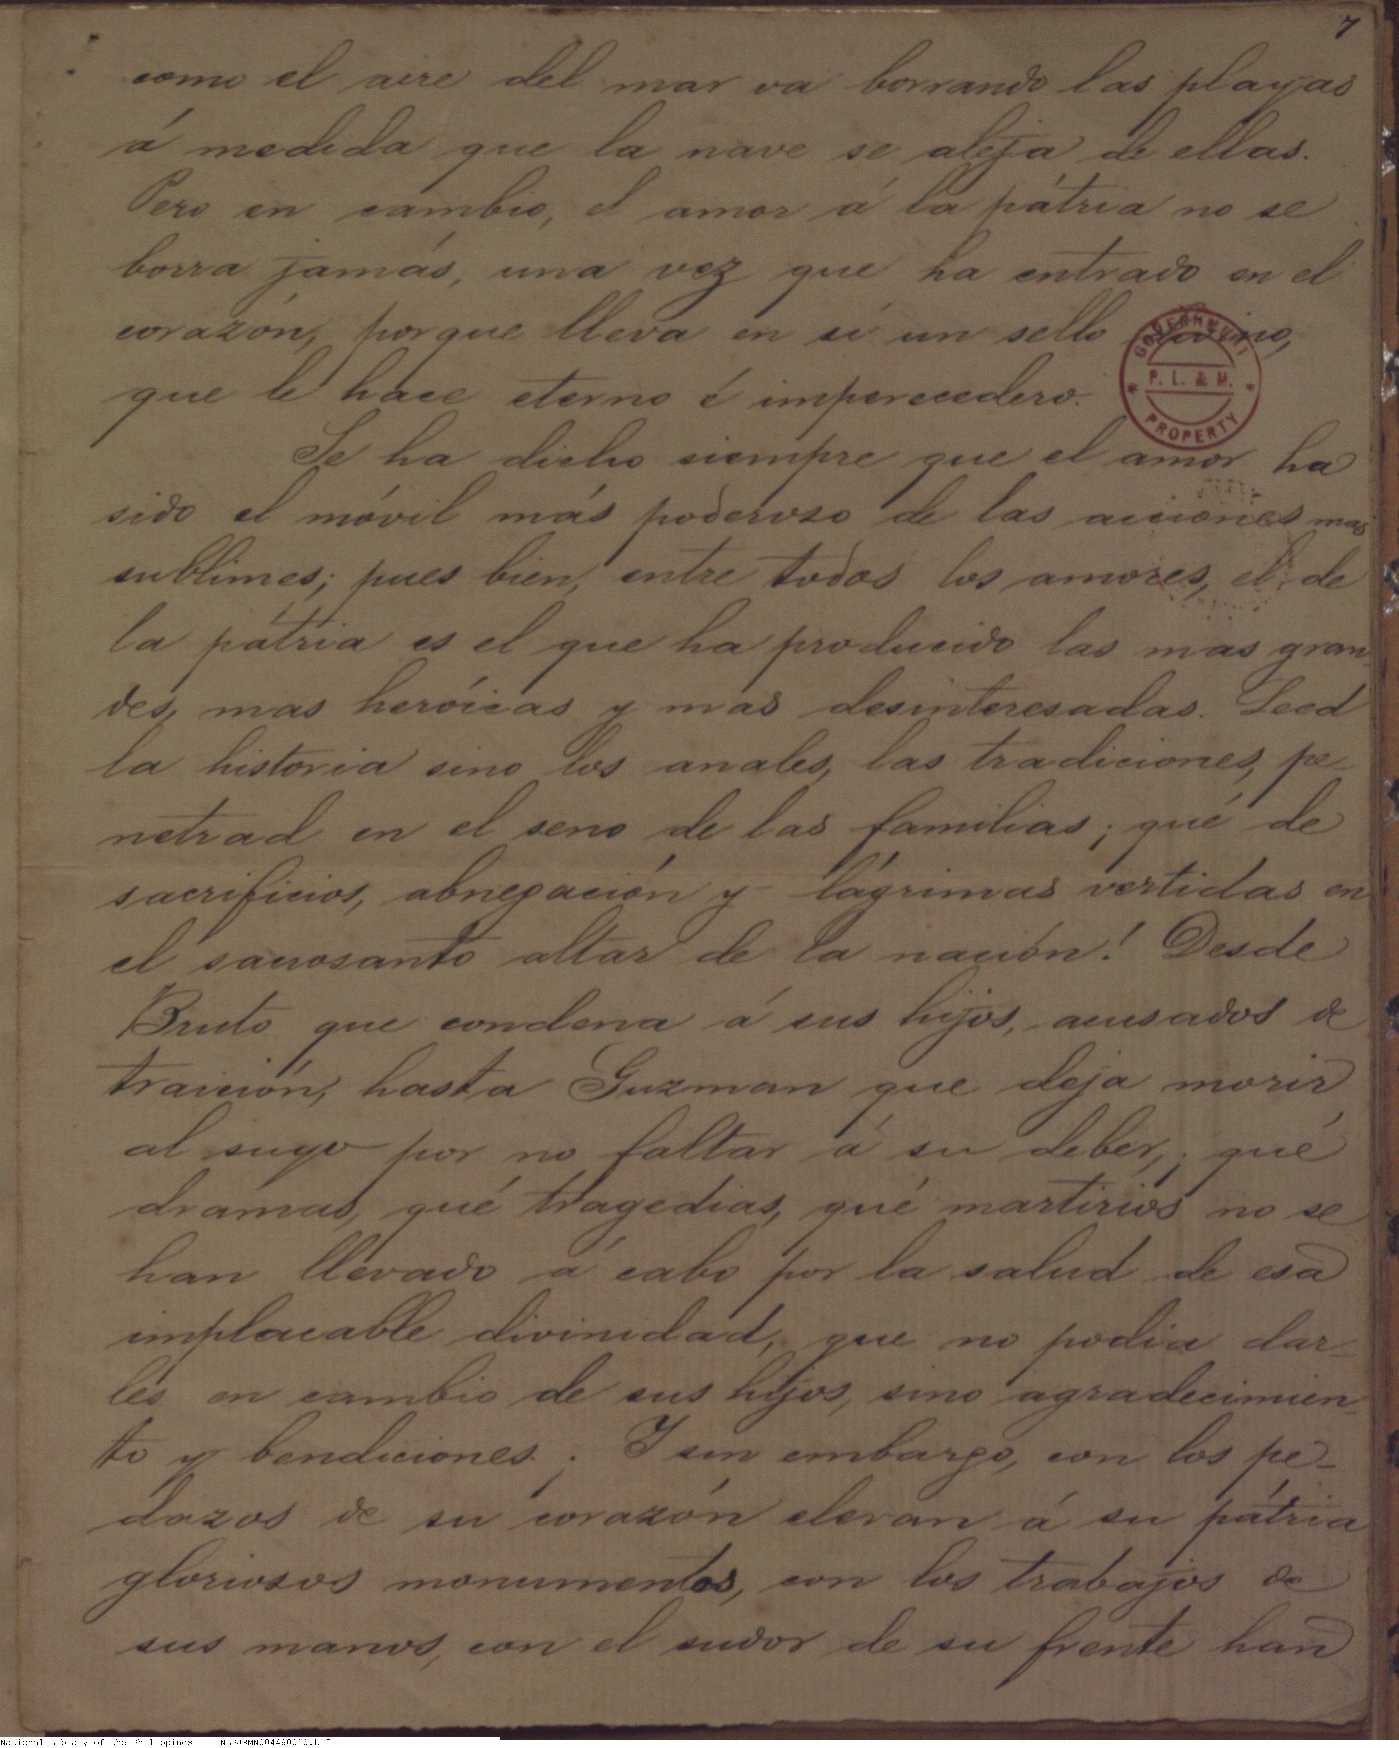 7
como el aire del mar va borrando las playas
á medida que la nave se aleja de ellas.
Pero en cambio, el amor á la pátria no se
borra jamás, una vez que ha entrado en el
corazón, porque lleva en sí un sello divino,
que le hace eterno é imperecedero.
GOVERNMENT
P. L. & M.
PROPERTY
Se ha dicho siempre que el amor ha
sido el móvil más poderoso de las acciones mas
sublimes; pues bien, entre todos los amores, el de
la pátria es el que ha producido las mas gran-
des, mas heróicas y mas desinteresadas. Leed
la historia sino los anales, las tradiciones, pe-
netrad en el seno de las familias; qué de
sacrificios, abnegación y lágrimas vertidas en
el sacrosanto altar de la nación! Desde
Bruto que condena á sus hijos, acusados de
traición, hasta Guzman que deja morir
al suyo por no faltar á su deber, ¡qué
dramas, qué tragedias, qué martirios no se
han llevado á cabo por la salud de esa
implacable divinidad, que no podia dar-
les en cambio de sus hijos, sino agradecimien-
to y bendiciones! Y sin embargo, con los pe-
dazos de su corazón elevan á su pátria
gloriosos monumentos, con los trabajos de
sus manos, con el sudor de su frente han
National Library of the Philippines